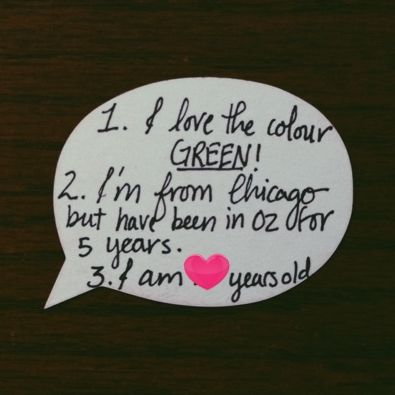 1. I love the colour
GREEN!
2. I'm from Chicago
but have been in OZ for
5 years.
3. I am years old